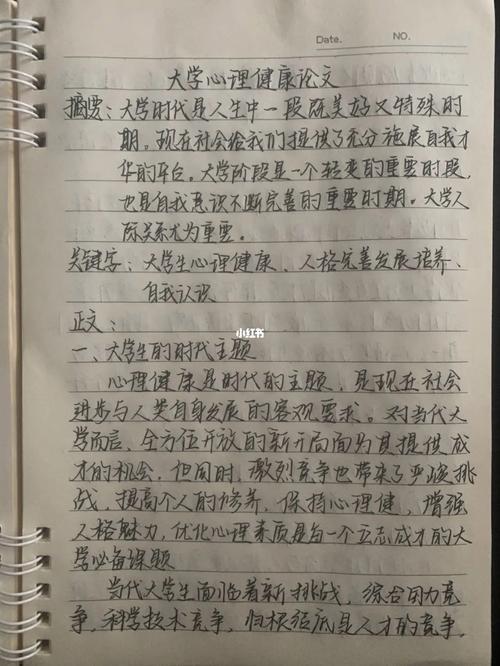 Date. NO.
大学心理健康论文
摘要:大学时代是人生中一段既美好又特殊时
期。现在社会给我们提供了充分施展自我才
华的平台。大学阶段是一个轻变的重要时段,
也是自我意识不断完善的重要时期。大学人
际关系尤为重要。
关键字:大学生心理健康、人格完善发展培养、
自我认识
正文:
小红书
一、大学生的时代主题
心理健康是时代的主题,是现在社会
进步与人类自身发展的客观要求。对当代大
学而言,全方位开放的新开局面为其提供成
才的机会,但同时,激烈竞争也带来了严峻挑
战,提高个人的修养,保持心理健,增强
人格魅力,优化心理素质是每一个立志成才的大
学必备课题
当代大学生面临着新挑战,综合国力竞
争,科学技术竞争,归根结底是人才的竞争,